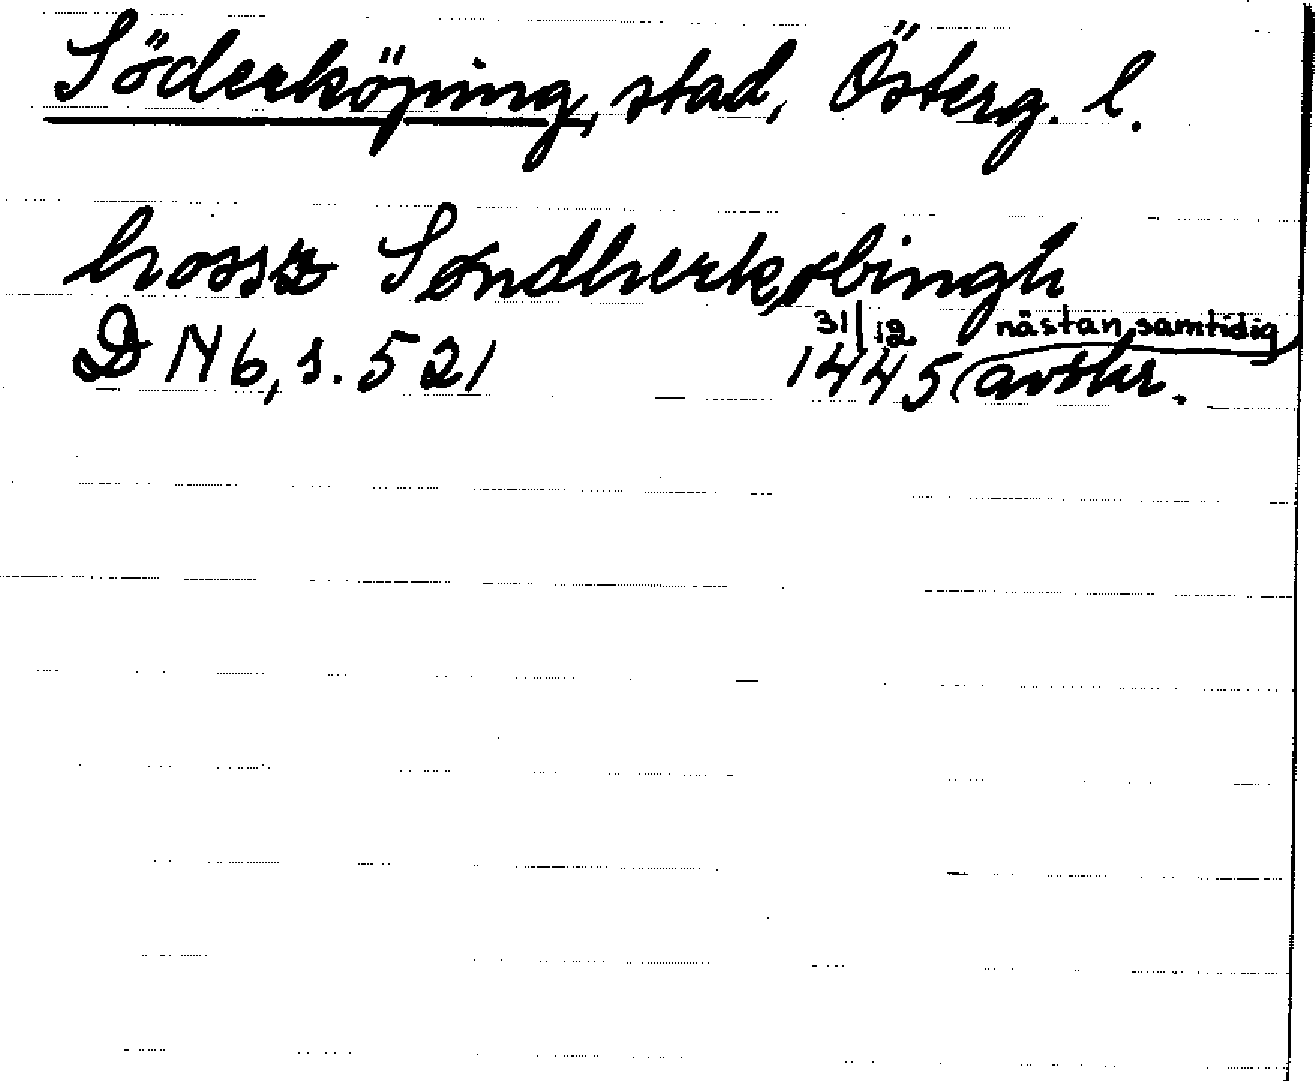 Söderköping, stad, Österg. l.
hossz Søndherkøbingh
DN 6, s. 521 31/12 1445 (nästan samtidig avskr.